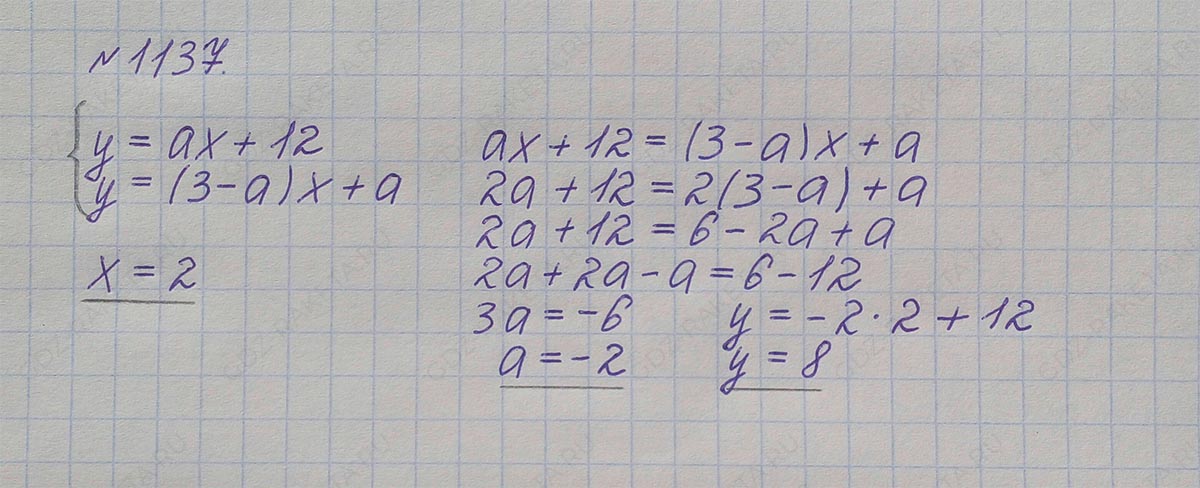 №1137.
y = ax + 12
y = (3-a)x + a
x = 2
ax + 12 = (3-a)x + a
2a + 12 = 2(3-a) + a
2a + 12 = 6 - 2a + a
2a + 2a - a = 6 - 12
3a = -6
a = -2
y = -2·2 + 12
y = 8